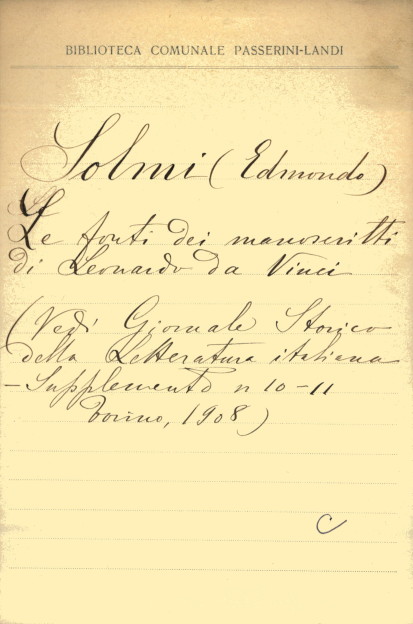 BIBLIOTECA COMUNALE PASSERINI-LANDI
Solmi (Edmondo)
Le fonti dei manoscritti
di Leonardo da Vinci
(Vedi Giornale Storico
della Letteratura italiana
- Supplemento n 10-11
Torino, 1908)
C